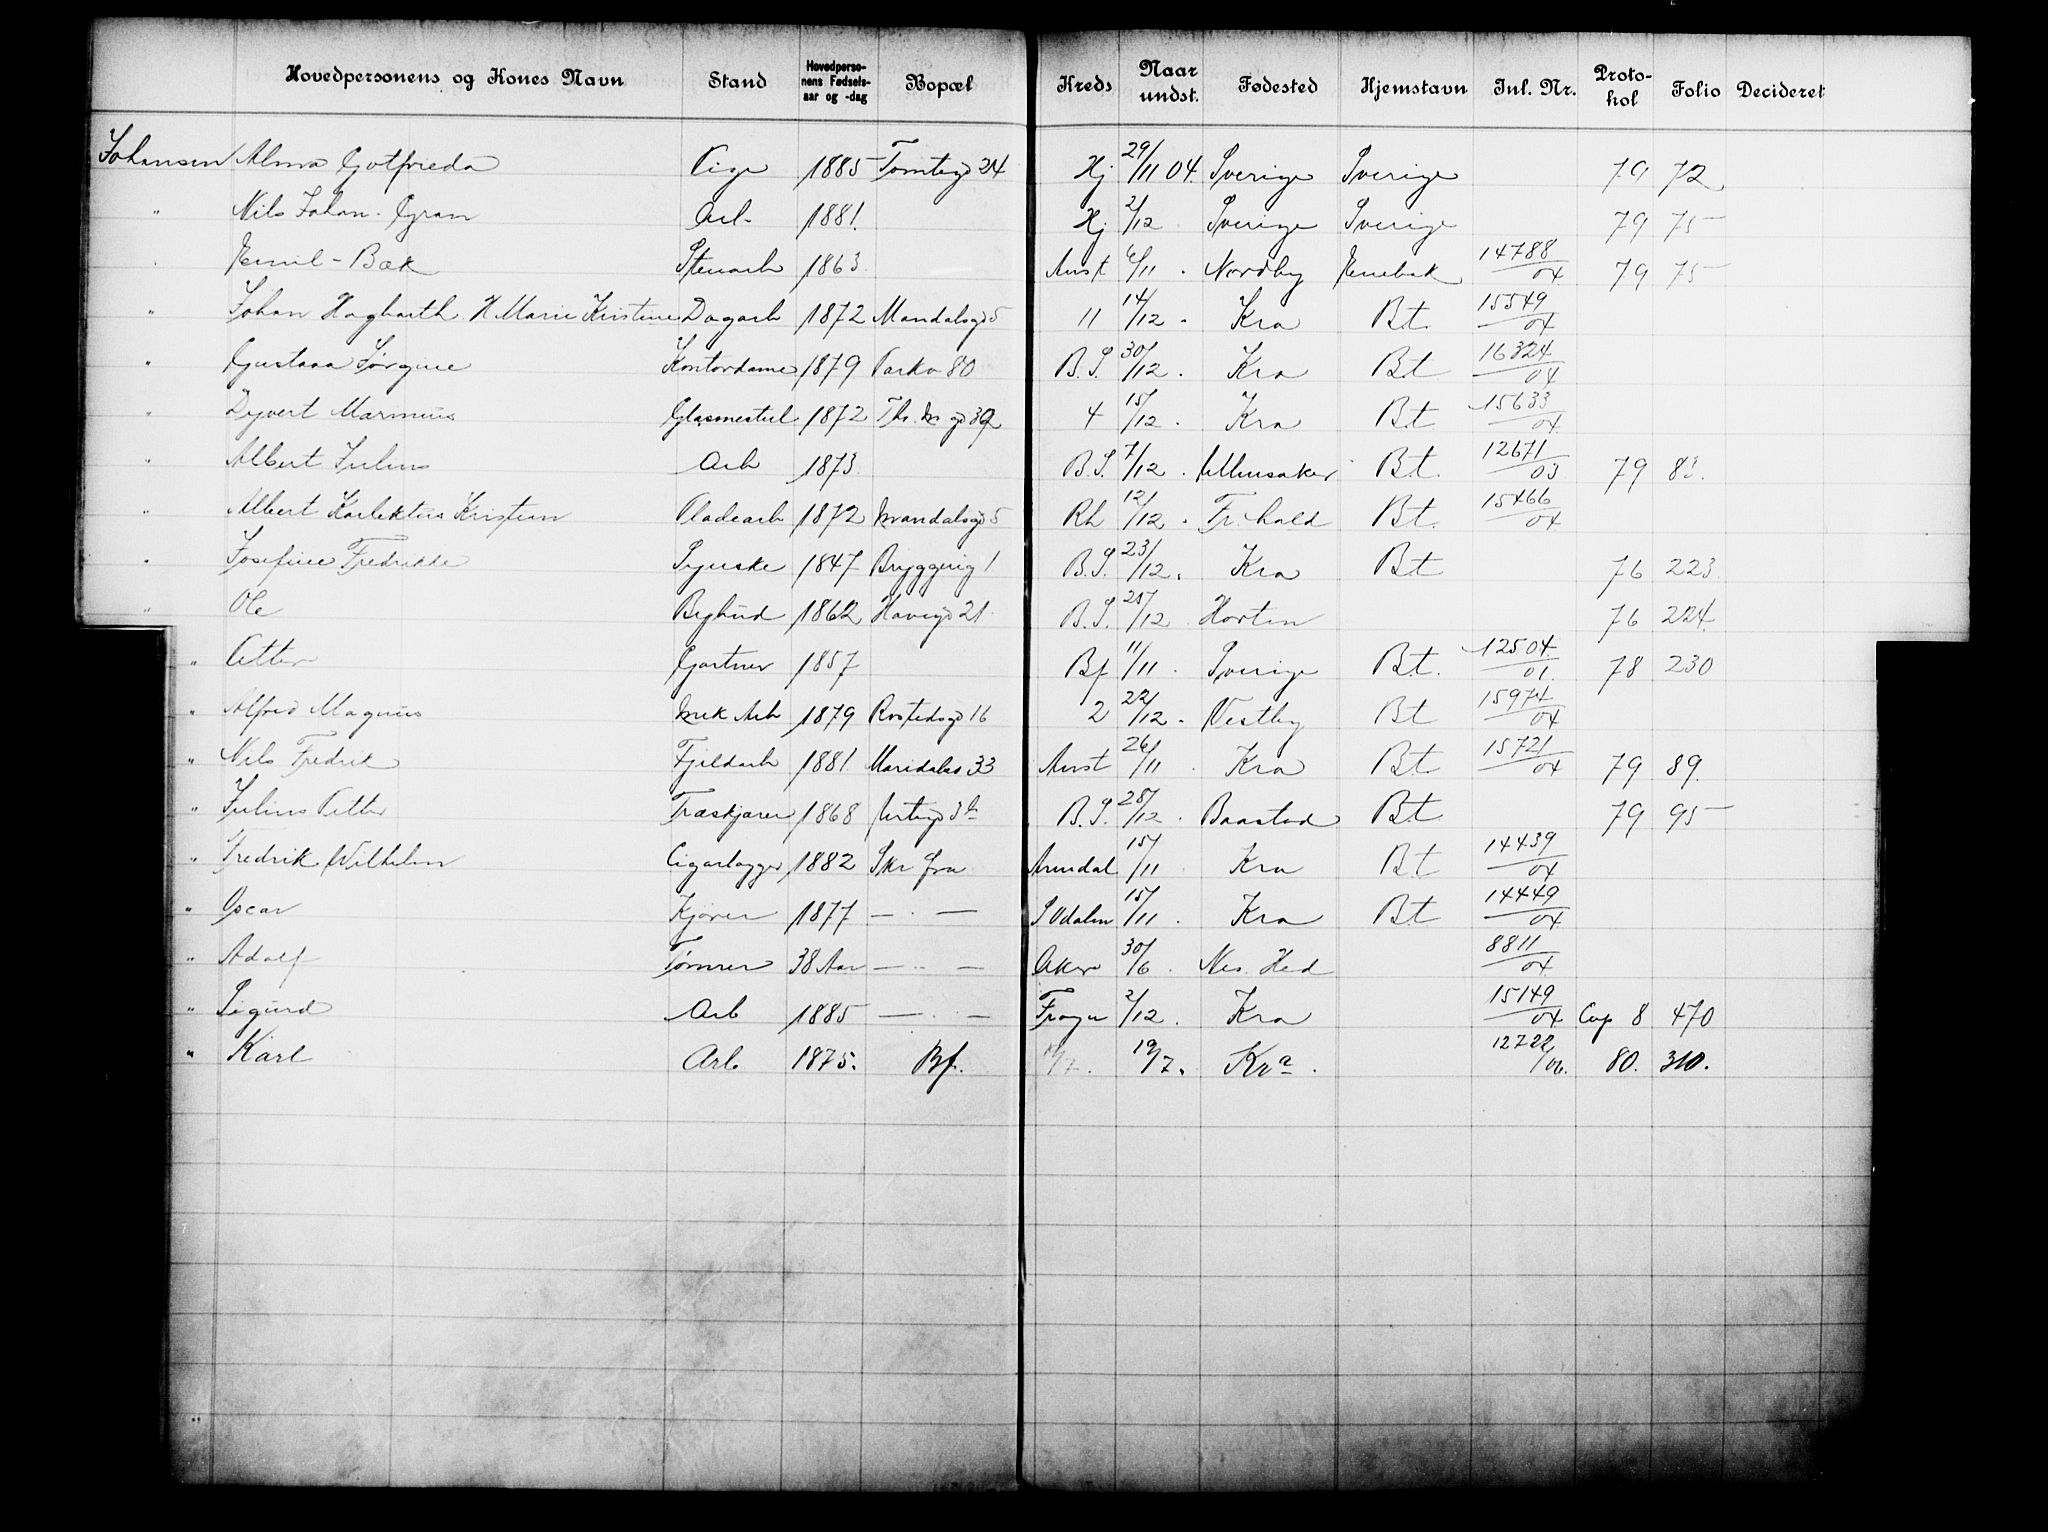 Hovedpersonens og Kones Navn Stand Hovedperso-nens Fødsels-aar og -dag Bopæl Kreds Naar undst. Fødested Hjemstavn Inl. Nr. Proto-kol Folio Decideret
Johansen Alma Gotfreda Pige 1885 Tomtegd 24 Hj 29/11 04 Sverige Sverige 79 72
" Nils Johan Gran Arb 1881 Hj 2/12 Sverige Sverige 79 75
" Emil - Bæk Stenarb 1863 Anst 6/11 Nordby Enebak 14788/04 79 75
" Johan Hagbarth H Marie Kristine Dagarb 1872 Mandalsgd 5 11 14/12 Kra Bt 15549/04
" Gustava Jørgine Kontordame 1879 Parkv 80 B.S. 30/12 Kra Bt 16324/04
" Dyvert Marinius Glasmester 1872 Ths. M gd 39 4 15/12 Kra Bt 15633/04
" Albert Julius Arb 1873 B.S. 7/12 Ullensaker Bt. 12671/03 79 83
" Albert Kristian Pladearb 1872 Mandalsgd 5 Rh 12/12 Fr.hald Bt. 15466/04
" Josefine Fredrikke Syerske 1847 Bryggerig 1 B.S. 23/12 Kra Bt 76 223
" Ole Bybud 1862 Havegd 21 B.S. 25/12 Horten 76 224
" Petter Gartner 1857 Bf 11/11 Sverige Bt. 12504/01 78 230
" Alfred Magnus Mek Arb 1879 Rostedsgd 16 2 22/12 Vestby Bt 15974/04
" Nils Fredrik Fjeldarb 1881 Maridalsv 33 Anst 26/11 Kra Bt 15721/04 79 89
" Julius Petter Træskjærer 1868 B.S. 28/12 Baastad Bt 79 95
" Fredrik Wilhelm Cigarlægger 1882 Skr fra Arendal 15/11 Kra Bt 14439/04
" Oscar Kjører 1877 — " — S Odalen 15/11 Kra Bt 14449/04
" Adolf Tømrer 38 Aar — " — Aker 30/6 Nes Hed 8811/04
" Sigurd Arb 1885 — " — Frogn 2/12 Kra 15149/04 Cop 8 470
" Karl Arb 1875. Bf. 19/7. Kra. 12722/06. 80. 310.
"